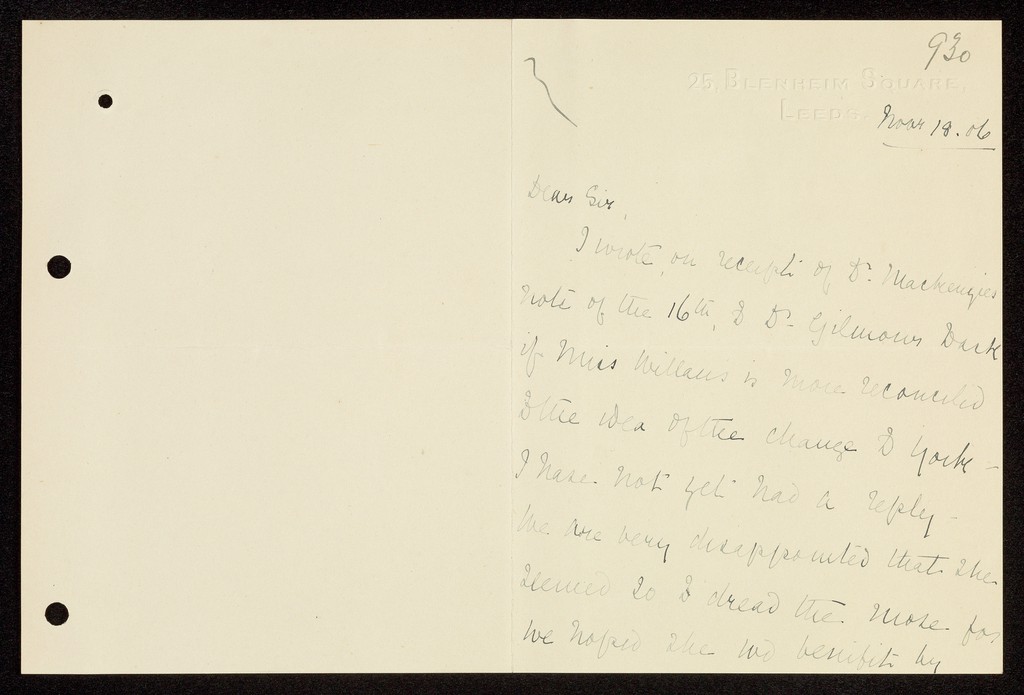 930
25, BLENHEIM SQUARE,
LEEDS.
Novr 18. 06
Dear Sir,
I wrote, on receipt of Dr. Mackenzies
note of the 16th, to Dr. Gilmour
if Miss Willans is more reconciled
to the idea of the change to York –
I have not yet had a reply –
We are very disappointed that she
seemed so to dread the move for
we hoped she wd benefit by